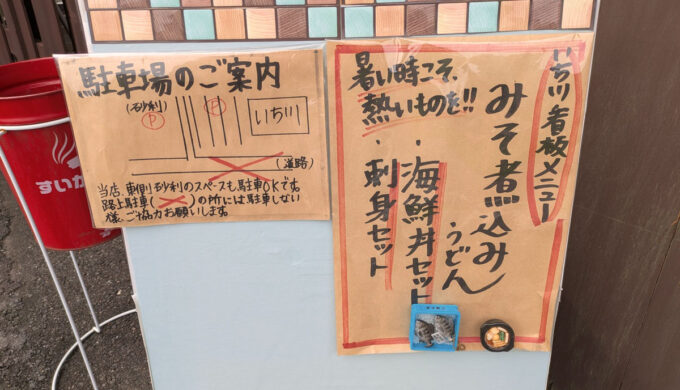 駐車場のご案内
(砂利)
P
P
いち川
(道路)
当店、東側砂利のスペースも駐車OKです。
路上駐車( )の所には駐車しない
様、ご協力お願いします。
いち川 看板メニュー
暑い時こそ、
熱いものを!!
みそ煮込み
うどん
・海鮮丼セット
・刺身セット
すいか